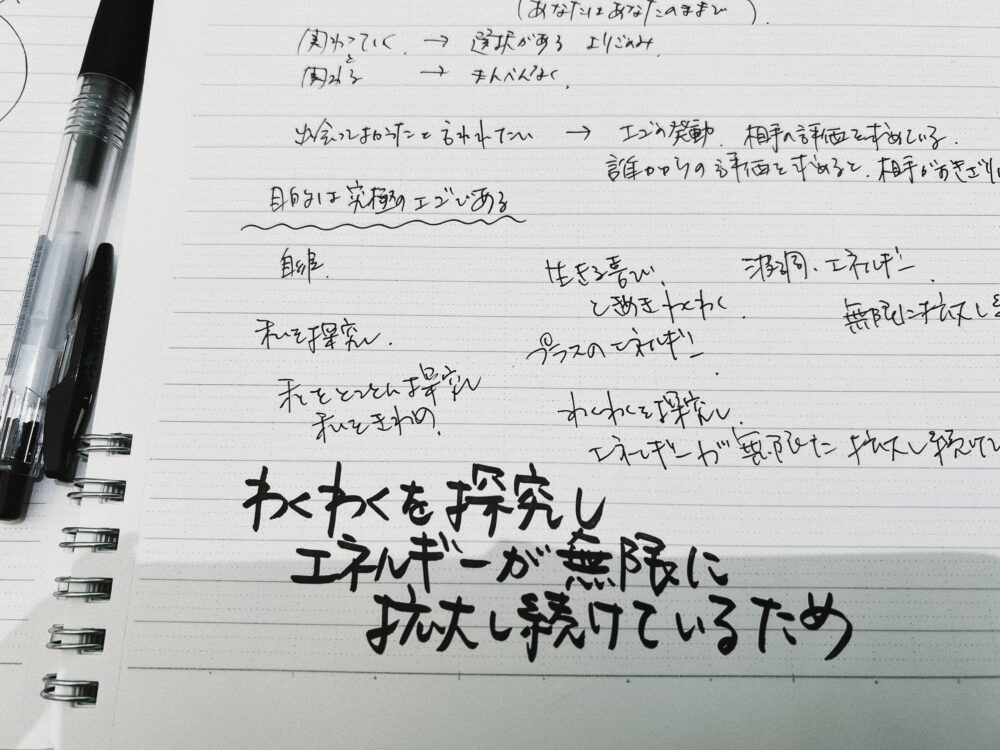 (あなたはあなたのままで)
関わっていく → 選択がある よりごのみ
関わると → まんべんなく
出会ってよかったと言われたい → エゴの発動 相手の評価を求めている
誰かからの評価を求めると、相手がおきざりに
目的は究極のエゴである
自分
生きる喜び 波動・エネルギー
ときめき わくわく 無限に拡大し
私を探究し プラスのエネルギー
私をとことん探究し わくわくを探究し
私をきわめ エネルギーが無限に拡大し続けて
わくわくを探究し
エネルギーが無限に
拡大し続けているため